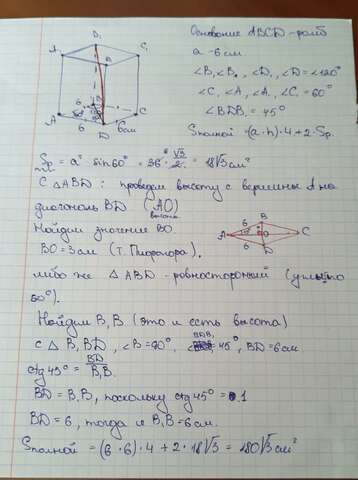 Основание ABCD - ромб
a - 6 см
∠B, ∠B₁, ∠D₁, ∠D = ∠120°
∠C, ∠A, ∠A₁, ∠C₁ = 60°
∠BDB₁ = 45°
Sполной = (a·h)·4+2·Sр.
B₁
A₁ C₁
D₁
B
A C
6 D 6см
Sр = a² · sin60° = 36 · √3/2 = 18√3 см²
С △ABD: проведем высоту с вершины A на
диагональ BD (AO)
высота
Найдем значение BO.
BO = 3 см (т. Пифагора).
либо же △ABD - равносторонний (углы по
60°).
6 B
A O C
6 D
Найдём B₁B (это и есть высота)
с △B₁BD, ∠B = 90°, 45°, BD = 6 см
BDB₁
ctg45° = BD/B₁B
BD = B₁B, поскольку ctg45° = 1
BD = 6, тогда и B₁B = 6 см.
Sполной = (6·6)·4+2·18√3 = 180√3 см²